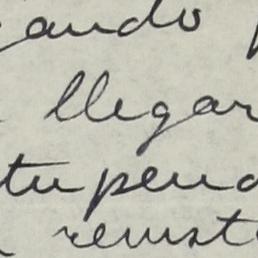 ando
llegar
tupend
revist